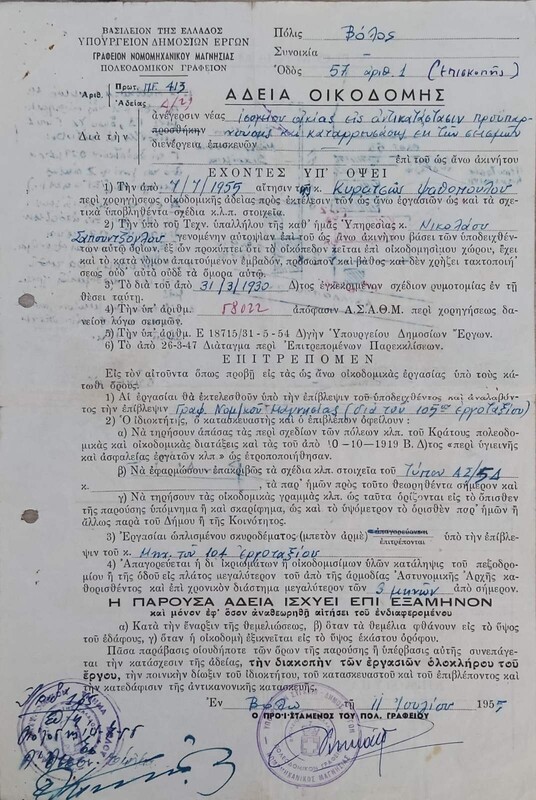 ΒΑΣΙΛΕΙΟΝ ΤΗΣ ΕΛΛΑΔΟΣ
ΥΠΟΥΡΓΕΙΟΝ ΔΗΜΟΣΙΩΝ ΕΡΓΩΝ
ΓΡΑΦΕΙΟΝ ΝΟΜΟΜΗΧΑΝΙΚΟΥ ΜΑΓΝΗΣΙΑΣ
ΠΟΛΕΟΔΟΜΙΚΟΝ ΓΡΑΦΕΙΟΝ
Πόλις Βόλος
Συνοικία —
Ὁδὸς 57 ἀριθ. 1 (Επισκοπῆς)
Ἀριθ. Πρωτ. ΠΓ 413
Ἀδείας Δ/29
ΑΔΕΙΑ ΟΙΚΟΔΟΜΗΣ
Διὰ τὴν
ἀνέγερσιν νέας ἰσογείου οἰκίας εἰς ἀντικατάστασιν προϋπαρ-
προσθήκην χούσης καὶ καταρρευσάσης ἐκ τῶν σεισμῶν
διενέργεια ἐπισκευῶν
ἐπὶ τοῦ ὡς ἄνω ἀκινήτου
ΕΧΟΝΤΕΣ ΥΠ' ΟΨΕΙ
1) Τὴν ἀπὸ 7/7/1955 αἴτησιν τῆς κ. Κυρατσῶς Ψαθοπούλου
περὶ χορηγήσεως οἰκοδομικῆς ἀδείας πρὸς ἐκτέλεσιν τῶν ὡς ἄνω ἐργασιῶν ὡς καὶ τὰ σχε-
τικὰ ὑποβληθέντα σχέδια κ.λ.π. στοιχεῖα.
2) Τὴν ὑπὸ τοῦ Τεχν. ὑπαλλήλου τῆς καθ' ἡμᾶς Ὑπηρεσίας κ. Νικολάου
Σαπουντζόγλου γενομένην αὐτοψίαν ἐπὶ τοῦ ὡς ἄνω ἀκινήτου βάσει τῶν ὑποδειχθέν-
των αὐτῷ ὁρίων, ἐξ ὧν προκύπτει ὅτι τὸ οἰκόπεδον κεῖται ἐπὶ οἰκοδομησίμου χώρου, ἔχει
καὶ τὸ κατὰ νόμον ἀπαιτούμενον ἐμβαδόν, πρόσωπον καὶ βάθος καὶ δὲν χρήζει τακτοποιή-
σεως οὐδ' αὐτὸ οὐδὲ τὰ ὅμορα αὐτῷ.
3) Τὸ διὰ τοῦ ἀπὸ 31/3/1930 Δ)τος ἐγκεκριμένον σχέδιον ρυμοτομίας ἐν τῇ
θέσει ταύτῃ.
4) Τὴν ὑπ' ἀριθμ. Γ8022 ἀπόφασιν Α.Σ.Α.Θ.Μ. περὶ χορηγήσεως δα-
νείου λόγῳ σεισμῶν.
5) Τὴν ὑπ' ἀριθμ. Ε 18715/31-5-54 Δ)γὴν Ὑπουργείου Δημοσίων Ἔργων.
6) Τὸ ἀπὸ 26-3-47 Διάταγμα περὶ Ἐπιτρεπομένων Παρεκκλίσεων.
ΕΠΙΤΡΕΠΟΜΕΝ
Εἰς τὸν αἰτοῦντα ὅπως προβῇ εἰς τὰς ὡς ἄνω οἰκοδομικὰς ἐργασίας ὑπὸ τοὺς κά-
τωθι ὅρους.
1) Αἱ ἐργασίαι θὰ ἐκτελεσθοῦν ὑπὸ τὴν ἐπίβλεψιν τοῦ ὑποδειχθέντος καὶ ἀναλαβόν-
τος τὴν ἐπίβλεψιν Γραφ. Νομ/κοῦ Μαγνησίας (διὰ τοῦ 105ου ἐργοταξίου)
2) Ὁ ἰδιοκτήτης, ὁ κατασκευαστὴς καὶ ὁ ἐπιβλέπων ὀφείλουν :
α) Νὰ τηρήσουν ἁπάσας τὰς περὶ σχεδίων τῶν πόλεων κλπ. τοῦ Κράτους πολεοδο-
μικὰς καὶ οἰκοδομικὰς διατάξεις καὶ τὰς τοῦ ἀπὸ 10-10-1919 Β. Δ)τος «περὶ ὑγιεινῆς
καὶ ἀσφαλείας ἐργατῶν κλπ » ὡς ἐτροποποιήθησαν.
β) Νὰ ἐφαρμόσουν ἐπακριβῶς τὰ σχέδια κλπ. στοιχεῖα τοῦ Τύπου Α2/5Δ
κ. , τὰ παρ' ἡμῶν πρὸς τοῦτο θεωρηθέντα σήμερον καὶ
γ) Νὰ τηρήσουν τὰς οἰκοδομικὰς γραμμὰς κλπ. ὡς ταῦτα ὁρίζονται εἰς τὸ ὄπισθεν
τῆς παρούσης ὑπόμνημα ἢ καὶ σκαρίφημα, ὡς καὶ τὸ ὑψόμετρο τὸ ὁρισθὲν παρ' ἡμῶν ἢ
ἄλλως παρὰ τοῦ Δήμου ἢ τῆς Κοινότητος.
3) Ἐργασίαι ὡπλισμένου σκυροδέματος (μπετὸν ἀρμὲ) ἀπαγορεύονται ἐπιτρέπονται ὑπὸ τὴν ἐπίβλε-
ψιν τοῦ κ. Μηχ. τοῦ 104 ἐργοταξίου
4) Ἀπαγορεύεται ἡ δι ἰκριωμάτων ἢ οἰκοδομησίμων ὑλῶν κατάληψις τοῦ πεζοδρο-
μίου ἢ τῆς ὁδοῦ εἰς πλάτος μεγαλύτερον τοῦ ἀπὸ τῆς ἁρμοδίας Ἀστυνομικῆς Ἀρχῆς κα-
θορισθέντος καὶ ἐπὶ χρονικὸν διάστημα μεγαλύτερον τῶν 3 μηνῶν ἀπὸ σήμερον.
Η ΠΑΡΟΥΣΑ ΑΔΕΙΑ ΙΣΧΥΕΙ ΕΠΙ ΕΞΑΜΗΝΟΝ
καὶ μόνον ἐφ' ὅσον ἀναθεωρηθῇ αἰτήσει τοῦ ἐνδιαφερομένου
α) Κατὰ τὴν ἔναρξιν τῆς θεμελιώσεως, β) ὅταν τὰ θεμέλια φθάνουν εἰς τὸ ὕψος
τοῦ ἐδάφους, γ) ὅταν ἡ οἰκοδομὴ ἐξικνεῖται εἰς τὸ ὕψος ἑκάστου ὀρόφου.
Πᾶσα παράβασις οἱουδήποτε τῶν ὅρων τῆς παρούσης ἢ ὑπέρβασις αὐτῆς συνεπάγε-
ται τὴν κατάσχεσιν τῆς ἀδείας, τὴν διακοπὴν τῶν ἐργασιῶν ὁλοκλήρου τοῦ
ἔργου, τὴν ποινικὴν δίωξιν τοῦ ἰδιοκτήτου, τοῦ κατασκευαστοῦ καὶ τοῦ ἐπιβλέποντος καὶ
τὴν κατεδάφισιν τῆς ἀντικανονικῆς κατασκευῆς.
Ἐν Βόλῳ τῇ 11 Ἰουλίου 1955
Ο ΠΡΟΙΣΤΑΜΕΝΟΣ ΤΟΥ ΠΟΛ. ΓΡΑΦΕΙΟΥ